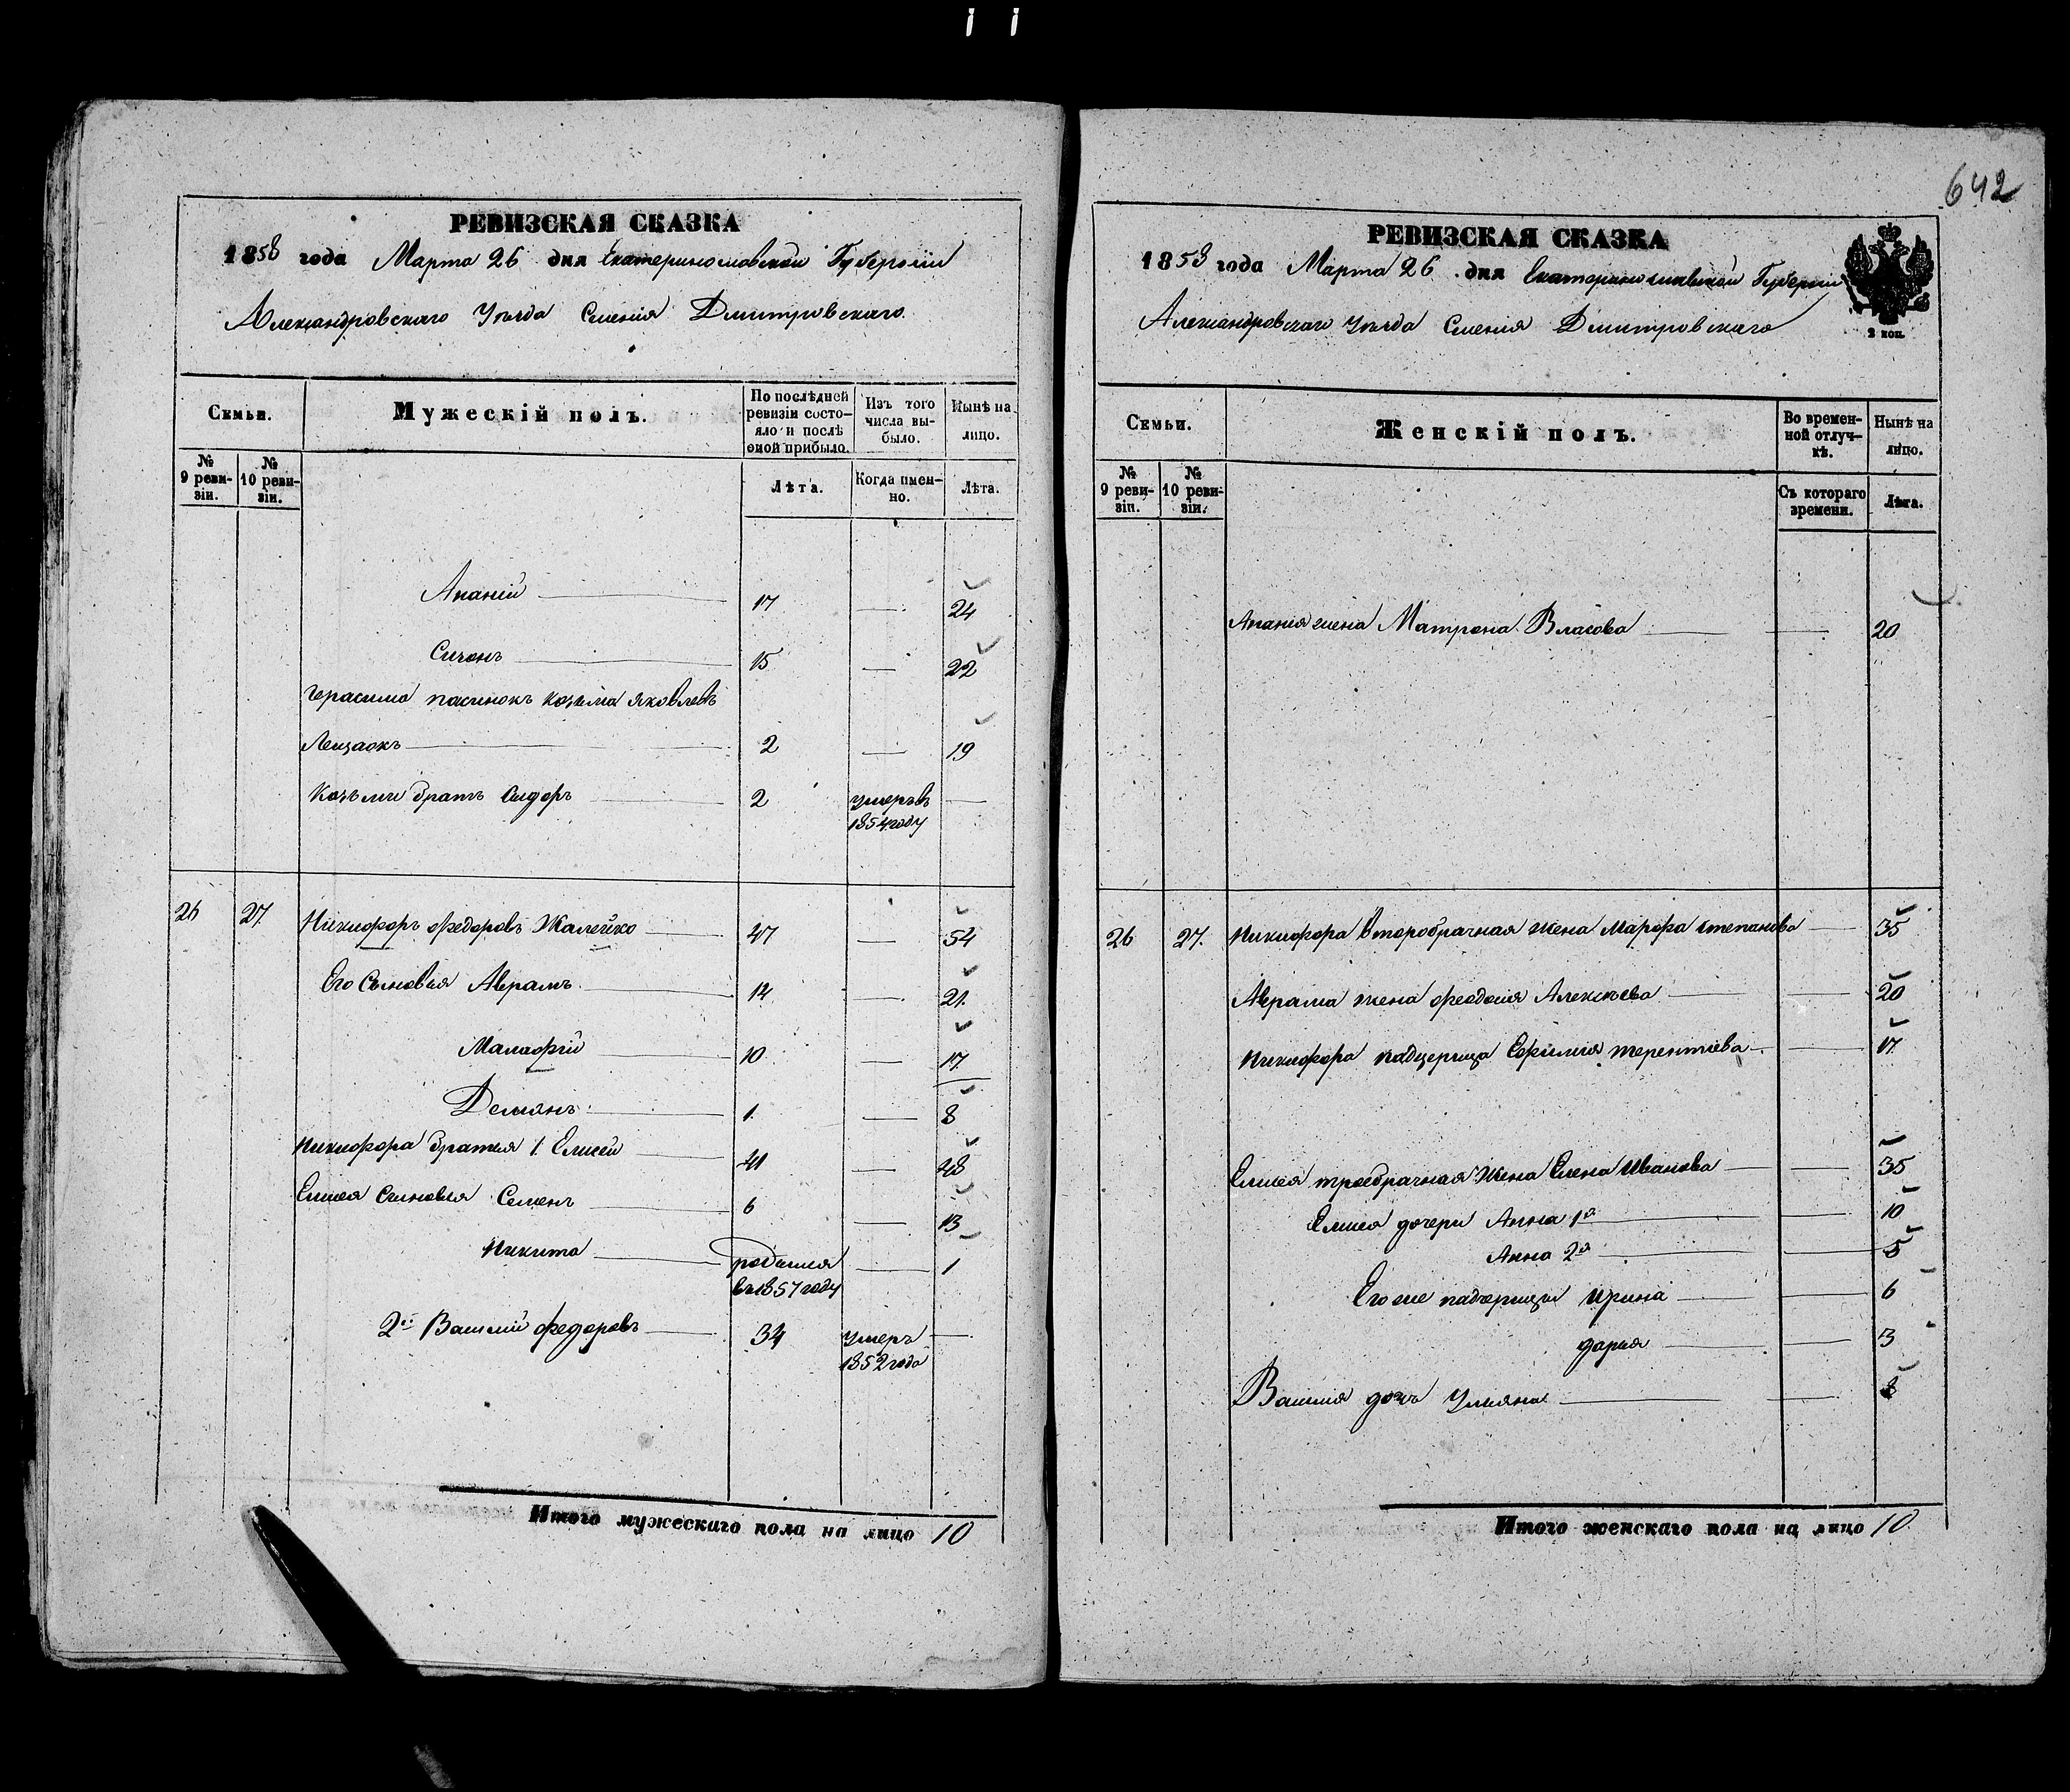 642
РЕВИЗСКАЯ СКАЗКА
1858 года Марта 26 дня Екатеринославской Губернии
Александровскаго Уѣзда Селенія Дмитровскаго
Семьи.
Мужескій полъ.
По послѣдней ревизіи состо-яло и послѣ оной прибыло.
Изъ того числа вы-было.
Нынѣ на лицо.
№ 9 реви-зіи.
№ 10 реви-зіи.
Лѣта.
Когда имен-но.
Лѣта.
Ананій 17 — 24
15 — 22
Герасима пасинокъ Козьма Яковлевъ
2 — 19
Козьмы братъ Сидоръ 2 умеръ въ —
1854 году
26 27 Никифоръ Федоровъ Жалейко 47 — 54
Его Сыновья Аврамъ 14 — 21
Малафій 10 — 17
Демянъ 1 — 8
Никифора братья 1. Елисей 41 — 48
Елисея Сыновья Семенъ 6 — 13
Никита родился — 1
въ 1857 году
2й Василій Федоровъ 34 умеръ —
1852 года
Итого мужескаго пола на лицо 10
РЕВИЗСКАЯ СКАЗКА
1858 года Марта 26 дня Екатеринославской Губерніи
Александровскаго Уѣзда Селенія Дмитровскаго
2 коп.
Семьи.
Женскій полъ.
Во времен-ной отлуч-кѣ.
Нынѣ на лицо.
№ 9 реви-зіи.
№ 10 реви-зіи.
Съ котораго времени.
Лѣта.
Ананія жена Матрона Власова — 20
26 27. Никифора второбрачная жена Марфа Степанова — 35
Аврама жена Феодосия Алексѣева — 20
Никифора падчерица Ефимия Терентиева — 17
Елисея троебрачная жена Елена Иванова — 35
Елисея дочери Анна 1я — 10
Анна 2я — 5
Его же падчерицы Ирина — 6
дарья — 3
Василия дочь Ульяна —
Итого женскаго пола на лицо 10